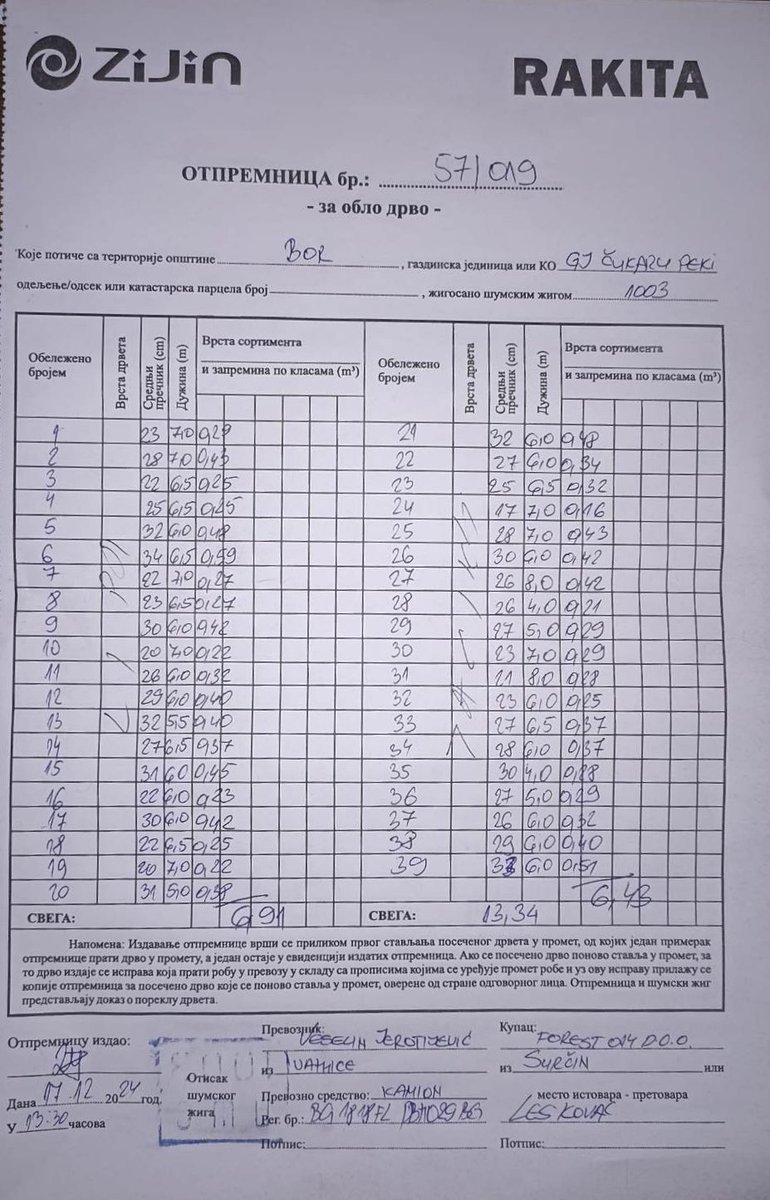 ZiJin RAKITA
ОТПРЕМНИЦА бр.: 57/019
- за обло дрво -
Које потиче са територије општине BOR, газдинска јединица или КО GJ ČUKARU PEKI
одељење/одсек или катастарска парцела број, жигосано шумским жигом 1003
Обележено бројем Врста дрвета Средњи пречник (cm) Дужина (m) Врста сортимента и запремина по класама (m³) Обележено бројем Врста дрвета Средњи пречник (cm) Дужина (m) Врста сортимента и запремина по класама (m³)
1 23 7,0 0,29 21 32 6,0 0,48
2 28 7,0 0,43 22 27 6,0 0,34
3 22 6,5 0,25 23 25 6,5 0,32
4 25 6,5 0,25 24 17 7,0 0,16
5 32 6,0 0,48 25 28 7,0 0,43
6 34 6,5 0,59 26 30 6,0 0,42
7 22 7,0 0,27 27 26 8,0 0,42
8 23 6,5 0,27 28 26 4,0 0,21
9 30 6,0 0,42 29 27 5,0 0,29
10 20 7,0 0,22 30 23 7,0 0,29
11 26 6,0 0,32 31 21 8,0 0,28
12 29 6,0 0,40 32 23 6,0 0,25
13 32 5,5 0,40 33 27 6,5 0,37
14 27 6,5 0,37 34 28 6,0 0,37
15 31 6,0 0,45 35 30 4,0 0,28
16 22 6,0 0,23 36 27 5,0 0,29
17 30 6,0 0,42 37 26 6,0 0,32
18 22 6,5 0,25 38 29 6,0 0,40
19 20 7,0 0,22 39 33 6,0 0,51
20 31 5,0 0,38
СВЕГА: 6,91 СВЕГА: 13,34 6,43
Напомена: Издавање отпремнице врши се приликом првог стављања посеченог дрвета у промет, од којих један примерак
отпремнице прати дрво у промету, а један остаје у евиденцији издатих отпремница. Ако се посечено дрво поново ставља у промет, за
то дрво издаје се исправа која прати робу у превозу у складу са прописима којима се уређује промет робе и уз ову исправу прилажу се
копије отпремница за посечено дрво које се поново ставља у промет, оверене од стране одговорног лица. Отпремница и шумски жиг
представљају доказ о пореклу дрвета.
Отпремницу издао: Превозник: VESELIN JEROTIJEVIĆ Купац: FOREST 014 D.O.O.
из VATNICE из SURČIN или
Дана 17.12 2024 год. Отисак шумског жига Превозно средство: KAMION место истовара - претовара
У 13:30 часова Рег. бр.: BG 1818 FL LESKOVAC
Потпис: Потпис: